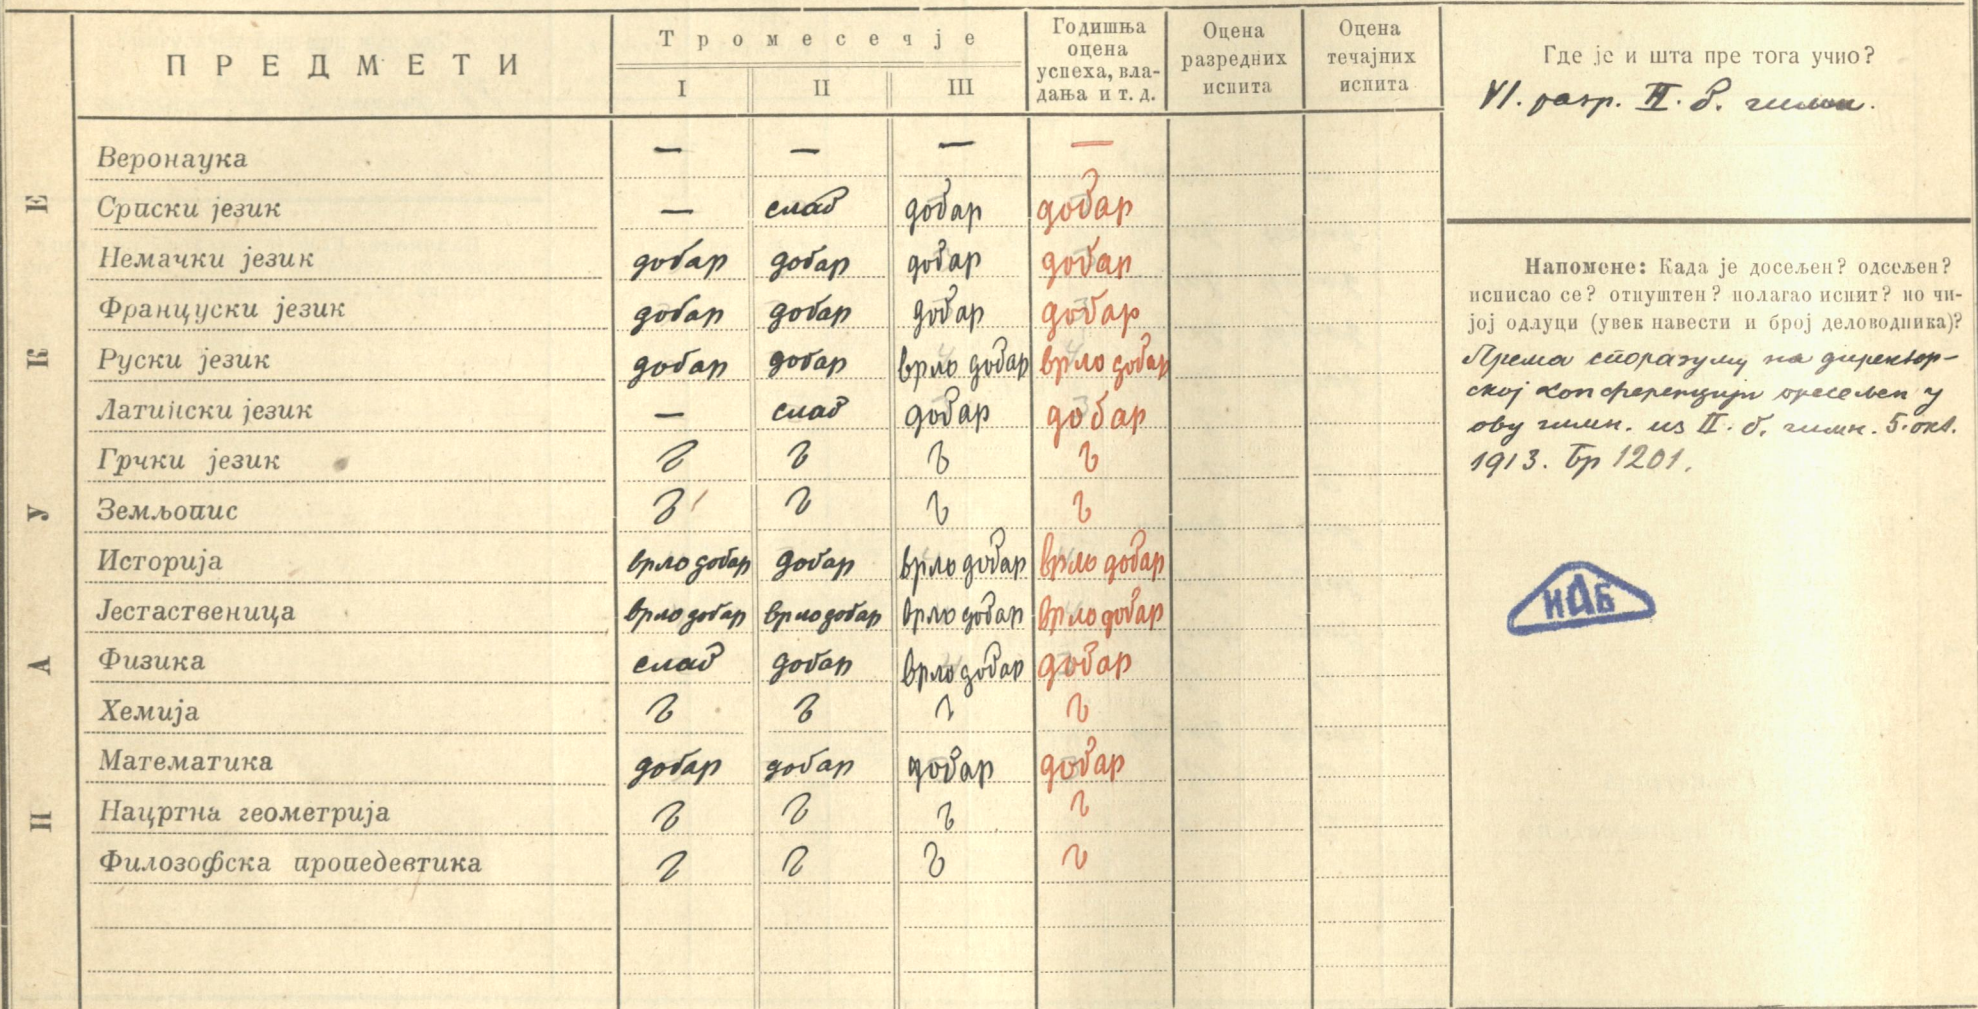 ПРЕДМЕТИ
Тромесечје
I II III
Годишња
оцена
успеха, вла-
дања и т. д.
Оцена
разредних
испита
Оцена
течајних
испита
Где је и шта пре тога учио?
VI. разр. II. б. гимн.
НАУКЕ
Веронаука — — — —
Српски језик — слаб добар добар
Немачки језик добар добар добар добар
Француски језик добар добар добар добар
Руски језик добар добар врло добар врло добар
Латински језик — слаб добар добар
Грчки језик
Земљопис
Историја врло добар добар врло добар врло добар
Јестаственица врло добар врло добар врло добар врло добар
Физика слаб добар врло добар добар
Хемија
Математика добар добар добар добар
Нацртна геометрија
Филозофска пропедевтика
Напомене: Када је досељен? одсељен?
исписао се? отпуштен? полагао испит? по чи-
јој одлуци (увек навести и број деловодника)?
Према споразуму на директор-
ској конференцији пресељен у
ову гимн. из II. б. гимн. 5. окт.
1913. Бр 1201.
ИАБ